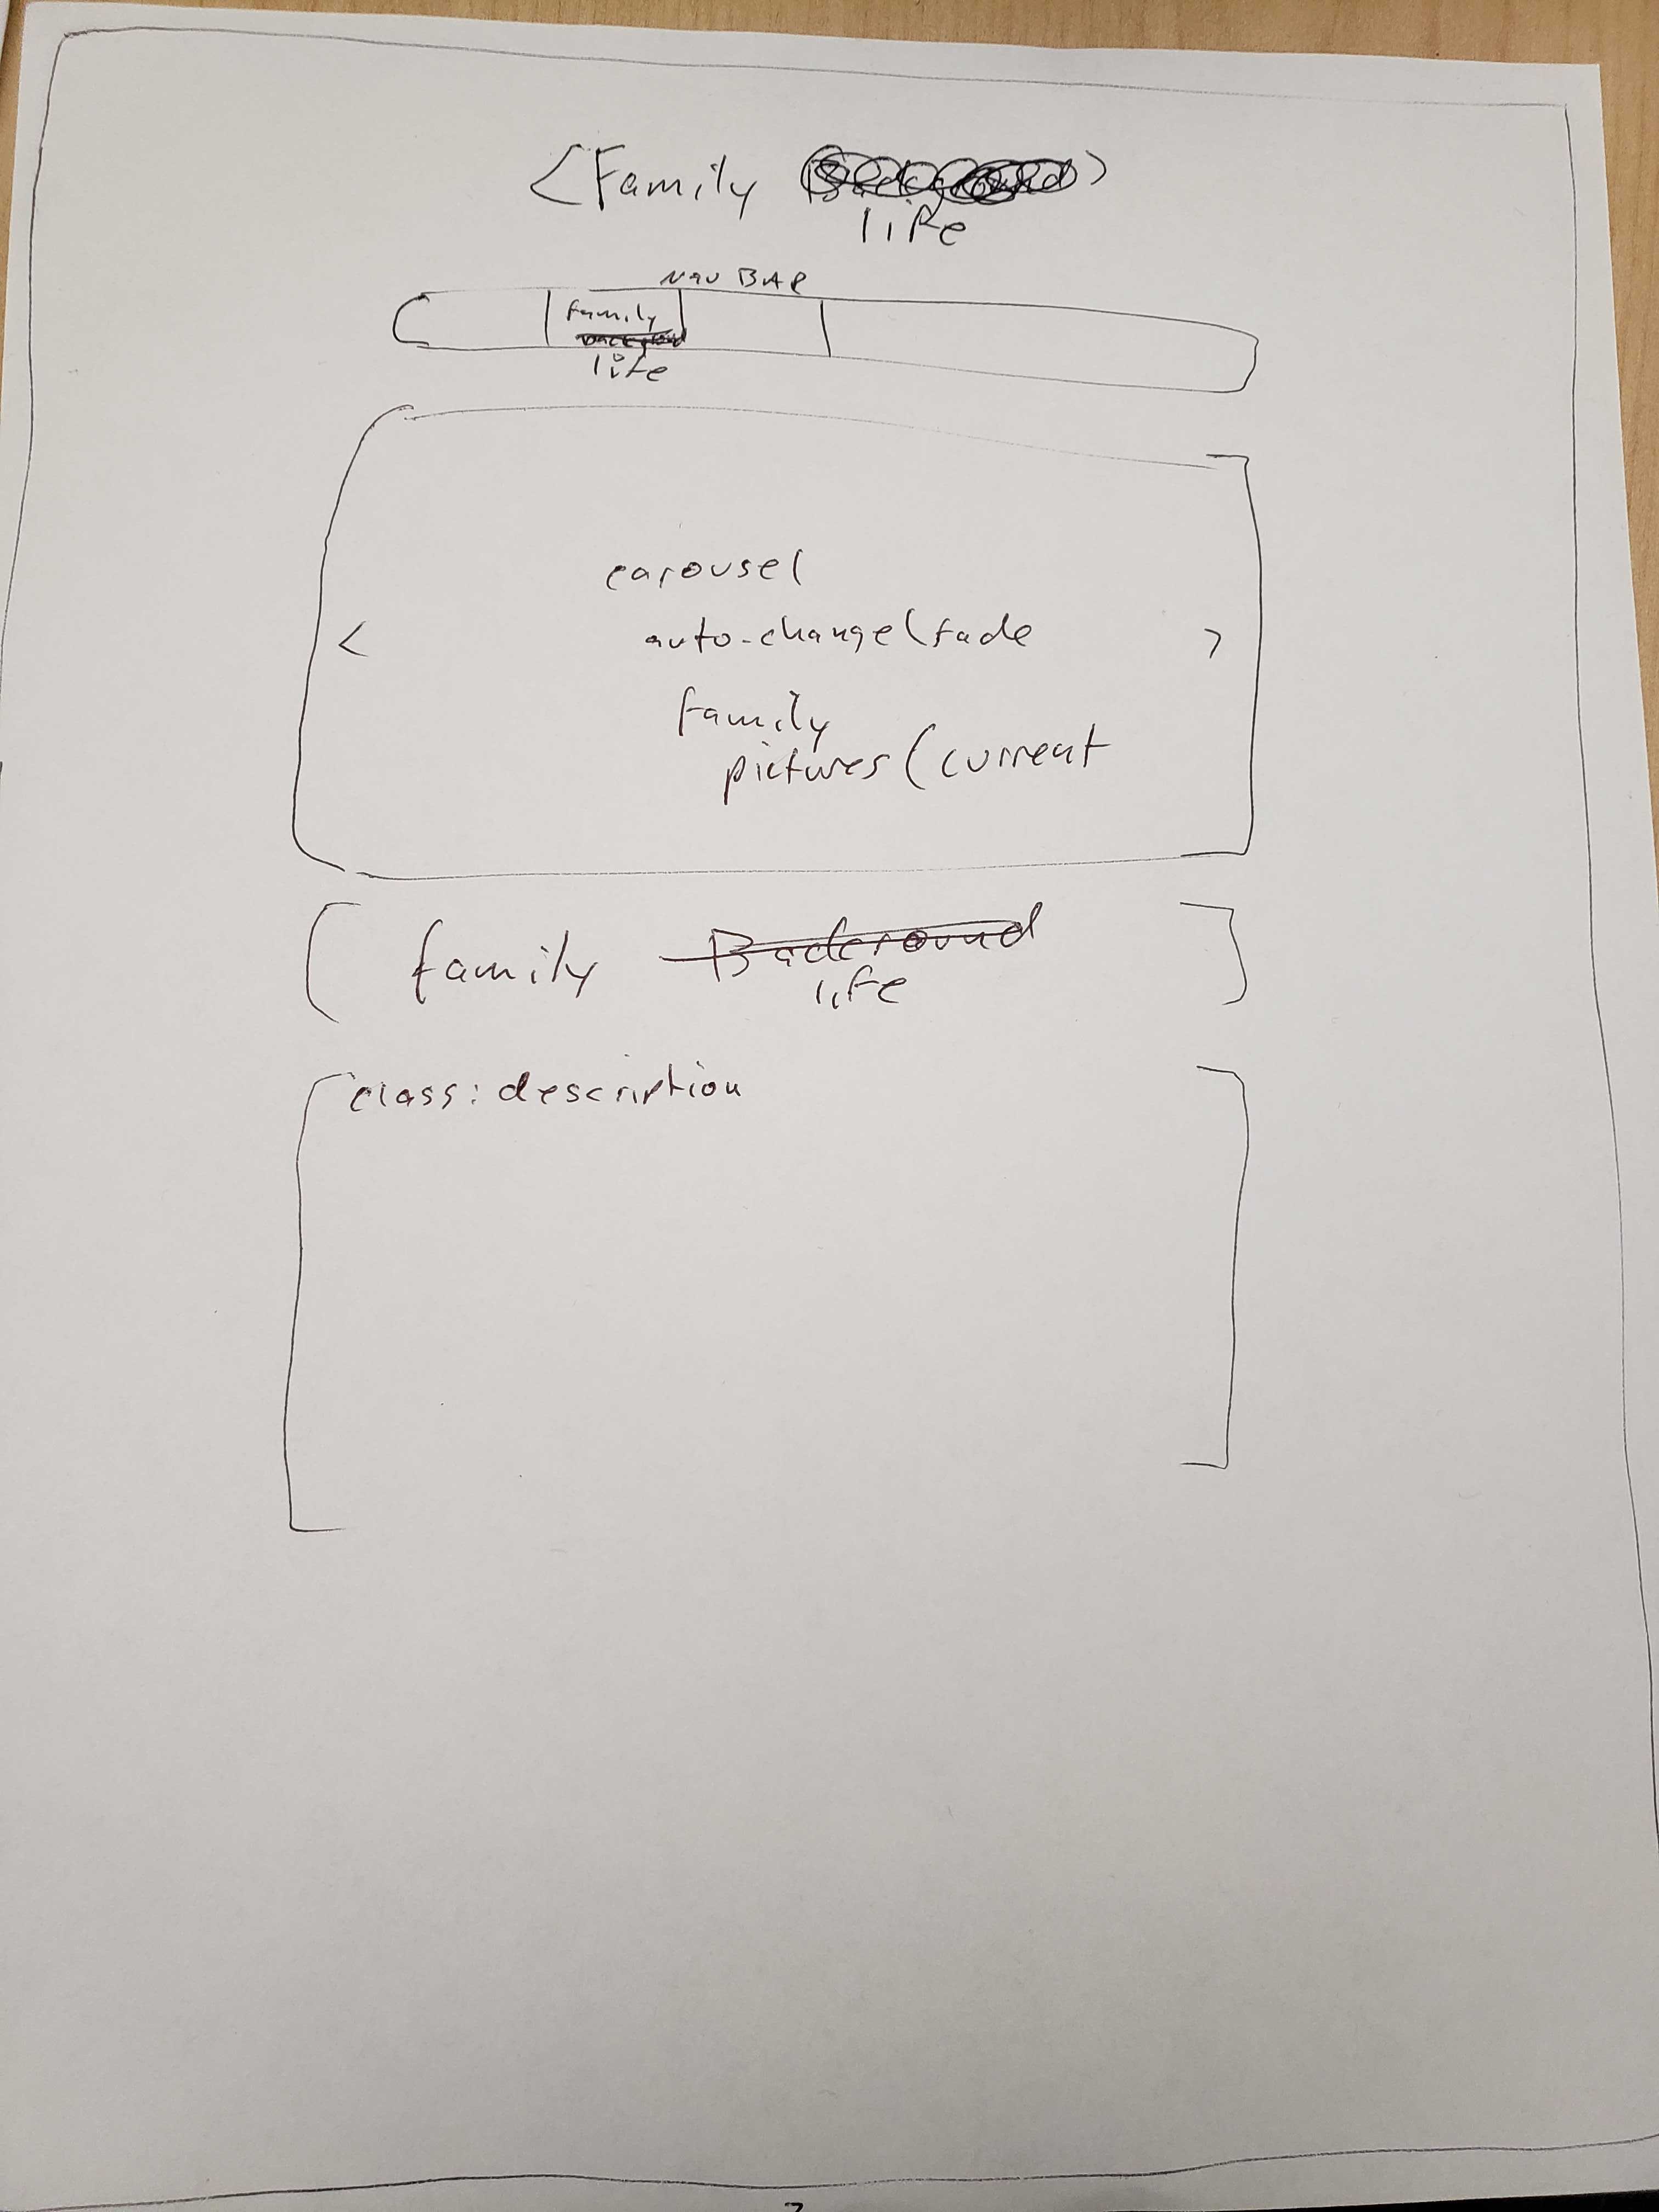 <Family Background>
life
Nav BAR
family
background
life
carousel
auto-change(fade
<
>
family
pictures (current
family Backround
life
class: description